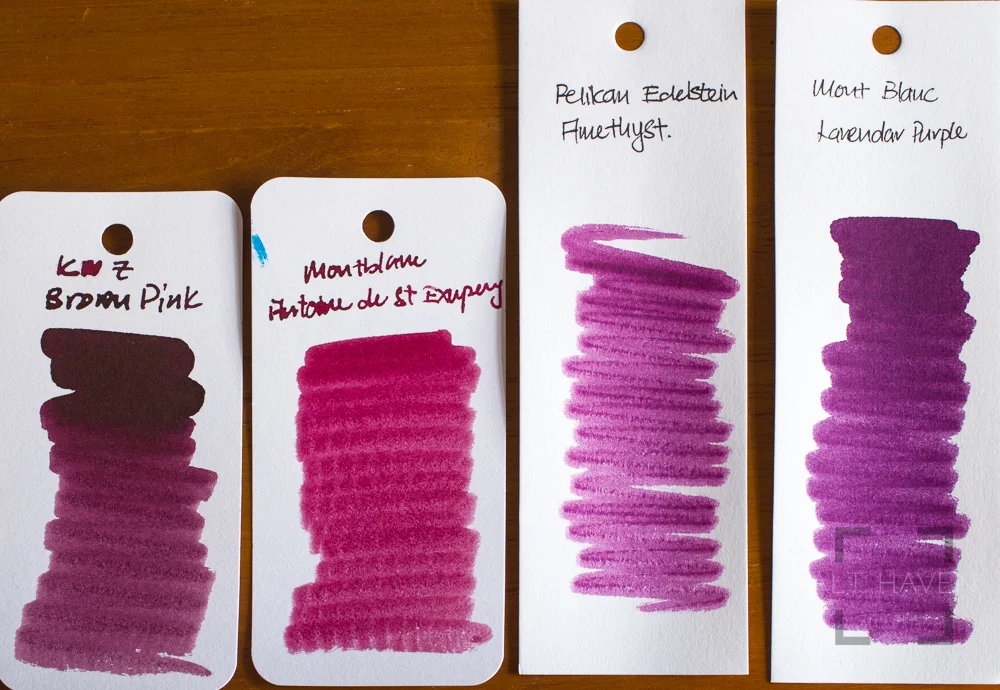 KWZ
Brown Pink
Montblanc
Antoine de St Exupery
Pelikan Edelstein
Amethyst.
Mont Blanc
Lavendar Purple
LT HAVEN